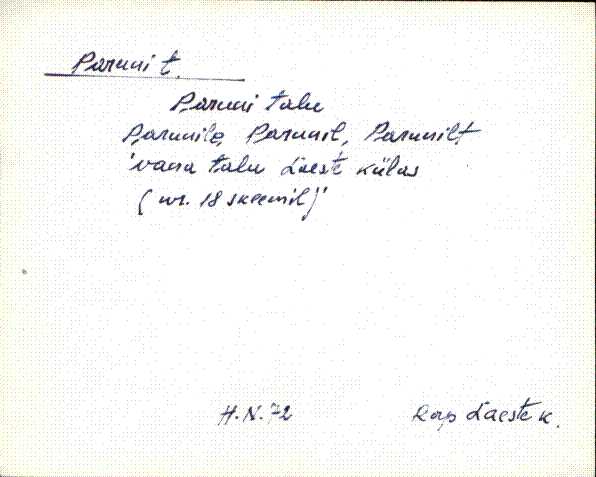 Paruni t.
Paruni talu
Parunile, Parunil, Parunilt
'vana talu Laeste külas
(nr. 18 skeemil)'
H.N. 72 Räp Laeste k.